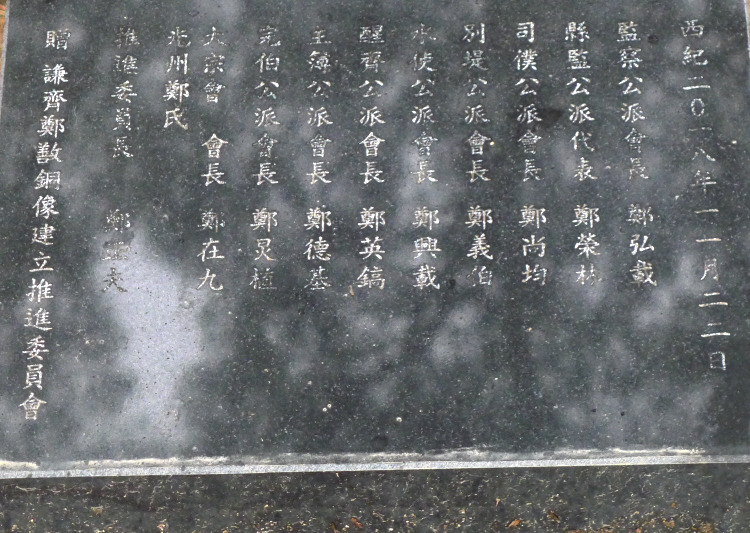 贈 謙齊鄭敾銅像建立推進委員會
推進委員長 鄭
光州鄭氏
大宗會 會長 鄭在九
完伯公派會長 鄭炅植
主簿公派會長 鄭德基
醒齊公派會長 鄭英鎬
水使公派會長 鄭興載
別堤公派會長 鄭義伯
司僕公派會長 鄭尚均
縣監公派代表 鄭榮林
監察公派會長 鄭弘載
西紀二0一八年一一月二二日